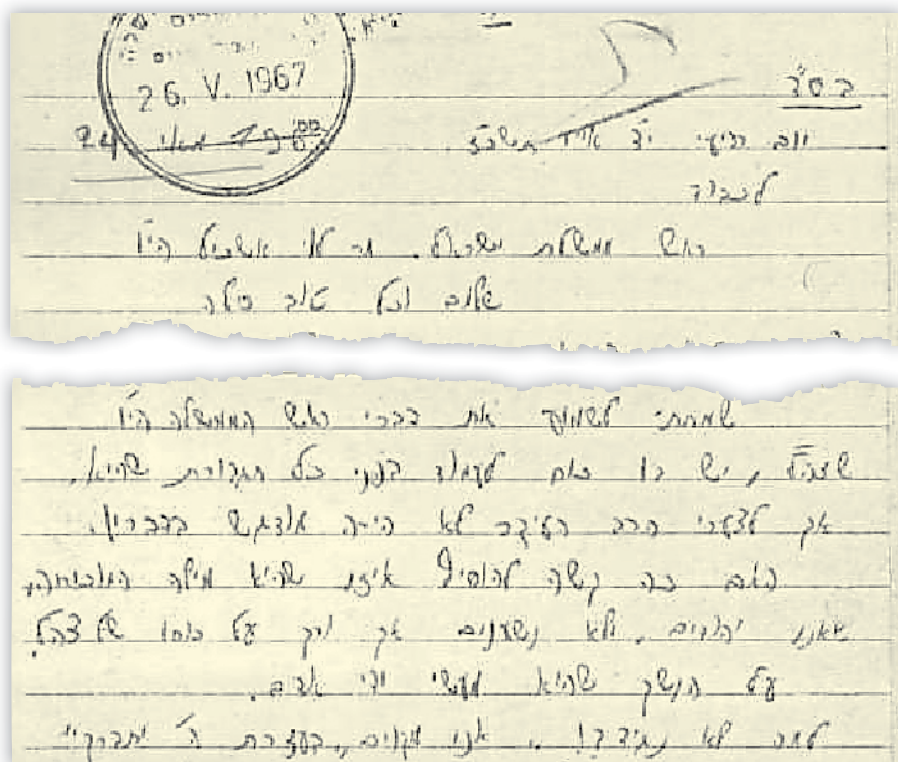 26. V. 1967
בס"ד
יום רביעי י"ד אייר תשכ"ז. 24
לכבוד
ראש ממשלת ישראל. מר לוי אשכול הי"ו
שלום וכל טוב סלה
שמחתי לשמוע את דברי ראש הממשלה הי"ו
שצה"ל, יש בו כוח לעמוד בפני כל תגבורת שהיא.
אך לצערי הרב העיקר לא היה מודגש בדבריו.
האם כה קשה להוסיף איזו שהיא מילה המוכיחה,
שאנו יהודים, ולא נשענים אך ורק על כוחו של צה"ל
על הנשק שהוא מעשי ידי אדם.
למה לא נגיד?! אנו מקוים, בעזרת ה' יתברך